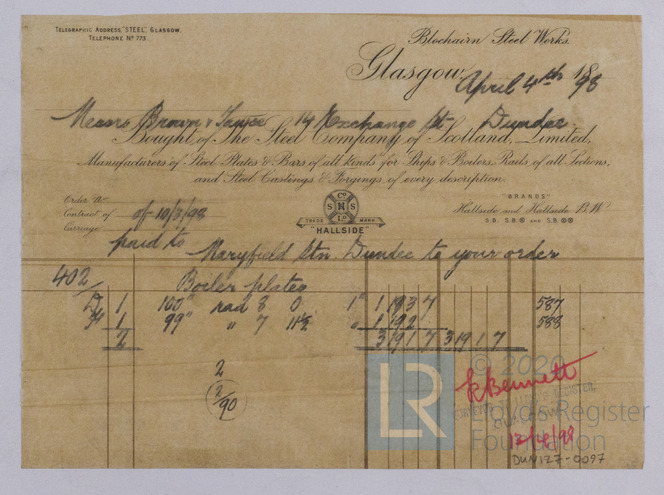 TELEGRAPHIC ADDRESS, "STEEL" GLASGOW.
TELEPHONE No 773.
Blochairn Steel Works.
Glasgow, April 4th 1898
Messrs Brown & 14 Exchange St Dundee
Bought of The Steel Company of Scotland, Limited,
Manufacturers of Steel Plates & Bars of all kinds for Ships & Boilers, Rails of all Sections,
and Steel Castings & Forgings, of every description.
Order No
Contract of of 10/3/98
Carriage paid to Maryfield Stn. Dundee to your order
Co
S N S
LD
TRADE MARK
"HALLSIDE"
"BRANDS"
Hallside and Hallside B.W.
S.B. S.B. AND S.B.
402 Boiler plates
1 100" rad 8 0 1" 1 19 3 7 587
1 99" " 7 11½ " 1 19 2 588
2 3 19 1 7 3 19 1 7
2
12/90
K Bennett
© 2020
LR
Lloyd's Register
Foundation
DUN127-0097